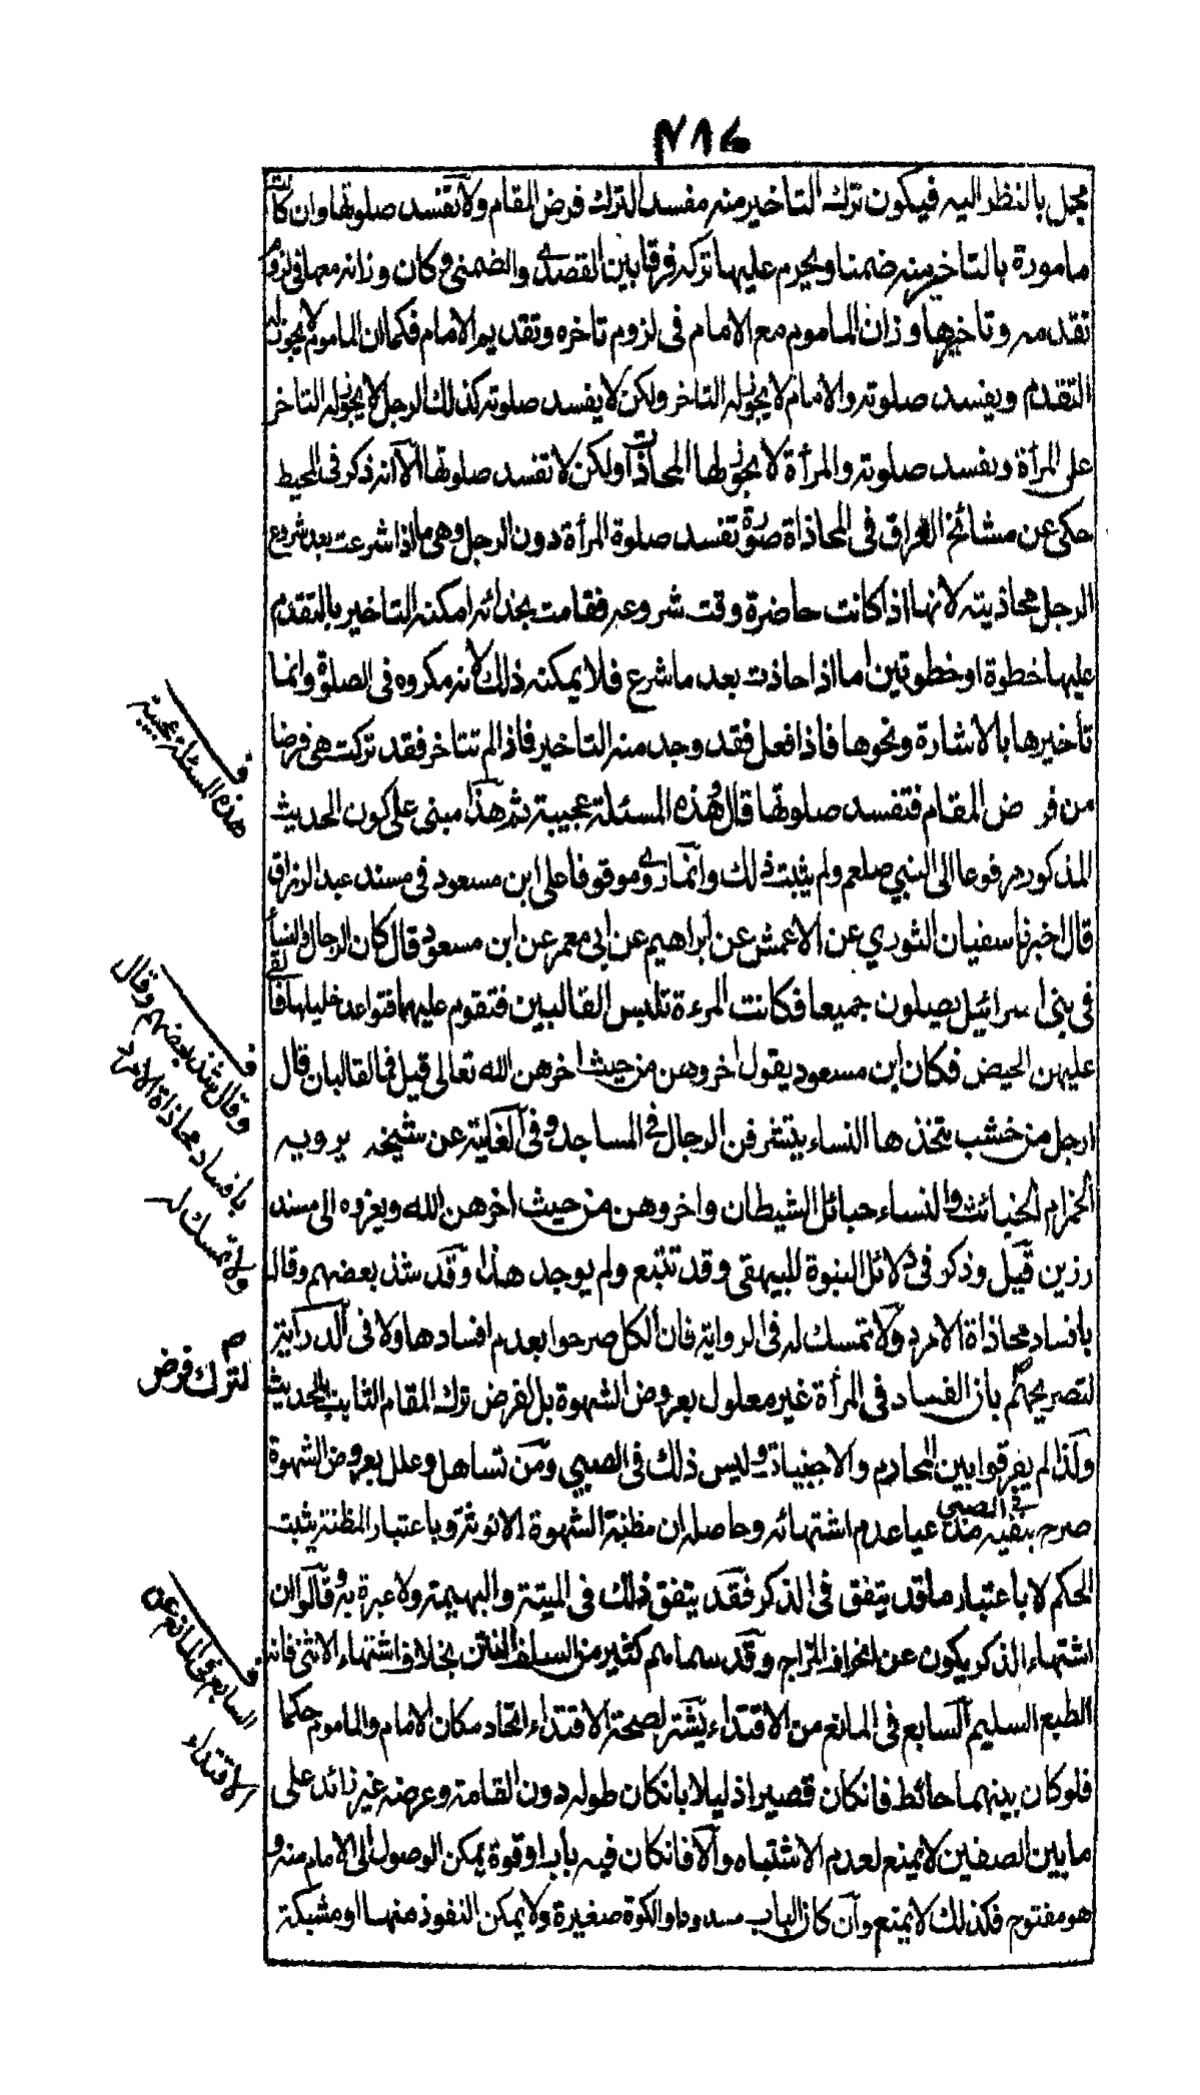 ٤٨٦
مجمل بالنظر اليه فيكون ترك التاخير منه مفسدا لترك فرض المقام ولا تفسد صلوتها وان كانت
مامورة بالتاخير منه ضمنا ويحرم عليها تركه فرقا بين القصدى والضمنى وكان وزانه معها فى لزوم
تقدمه وتاخيرها وزان الماموم مع الامام فى لزوم تاخره وتقديم الامام فكما ان الماموم لا يجوز له
التقدم ويفسد صلوته والامام لا يجوز له التاخر ولكن لا يفسد صلوته كذلك الرجل لا يجوز له التاخر
على المرأة ويفسد صلوته والمرأة لا يجوز لها المحاذات ولكن لا تفسد صلوتها الا انه ذكر فى المحيط
حكى عن مشائخ العراق فى المحاذاة صورة تفسد صلوة المرأة دون الرجل وهى ما اذا شرعت بعد شروع
الرجل محاذيته لانها اذا كانت حاضرة وقت شروعه فقامت بحذائه امكنه التاخير بالتقدم
عليها خطوة او خطوتين اما اذا حاذت بعد ما شرع فلا يمكنه ذلك لانه مكروه فى الصلوة وانما
تاخيرها بالاشارة ونحوها فاذا فعل فقد وجد منه التاخير فاذا لم تتاخر فقد تركت هى فرضا
من فر وض المقام فتفسد صلوتها قال وهذه المسئلة عجيبة ثم هذا مبنى على كون الحديث
المذكور مرفوعا الى النبي صلعم ولم يثبت ذلك وانما روى موقوفا على ابن مسعود فى مسند عبد الرزاق
قال اخبرنا سفيان الثوري عن الاعمش عن ابراهيم عن ابى معمر عن ابن مسعود قال كان الرجال والنساء
فى بنى اسرائيل يصلون جميعا فكانت المرءة تلبس القالبين فتقوم عليهما فتواعد خليلها فالقى
عليهن الحيض فكان ابن مسعود يقول اخروهن من حيث اخرهن الله تعالى قيل فما القالبان قال
ارجل من خشب يتخذها النساء يتشرفن الرجال فى المساجد وفى الغاية عن شيخه يرويه
الخمر ام الخبائث والنساء حبائل الشيطان واخروهن من حيث اخرهن الله ويعزوه الى مسند
رزين قيل وذكر فى دلائل النبوة للبيهقى وقد تتبع ولم يوجد هذا وقد شذ بعضهم وقال
بافساد محاذاة الامرد ولا تمسك له فى الرواية فان الكل صرحوا بعدم افسادها ولا فى الدراية
لتصريحهم بان الفساد فى المرأة غير معلول بعروض الشهوة بل لفرض ترك المقام الثابت بالحديث
ولذا لم يفرقوا بين المحارم والاجنبيات وليس ذلك فى الصبي ومن تساهل وعلل بعروض الشهوة
فى الصبي
صرح بنفيه مدعيا عدم اشتهائه وحاصله ان مظنة الشهوة الانوثة وباعتبار المظنة يثبت
الحكم لا باعتبار ما قد يتفق فى الذكر فقد يتفق ذلك فى الميتة والبهيمة ولا عبرة به وقالوا ان
اشتهاء الذكر يكون عن انحراف المزاج وقد سماهم كثير من السلف النتن بخلاف اشتهاء الانثى فانه
الطبع السليم السابع فى المانع من الاقتداء يشترط لصحة الاقتداء اتحاد مكان الامام والماموم حكما
فلو كان بينهما حائط فانكان قصيرا ذليلا بانكان طوله دون القامة وعرضه غير زائد على
ما بين الصفين لا يمنع لعدم الاشتباه والا فانكان فيه باب او قوة يمكن الوصول الى الامام منه و
هو مفتوح فكذلك لا يمنع وان كان الباب مسدودا والكوة صغيرة ولا يمكن النفوذ منها او مشبكة
ف
هذه المسئلة عجيبة
ف
وقال شذ بعضهم وقال
بافساد محاذاة الامرد
ولا تمسك له
م
لترك فرض
ف
السابع فى المانع عن
الاقتداء